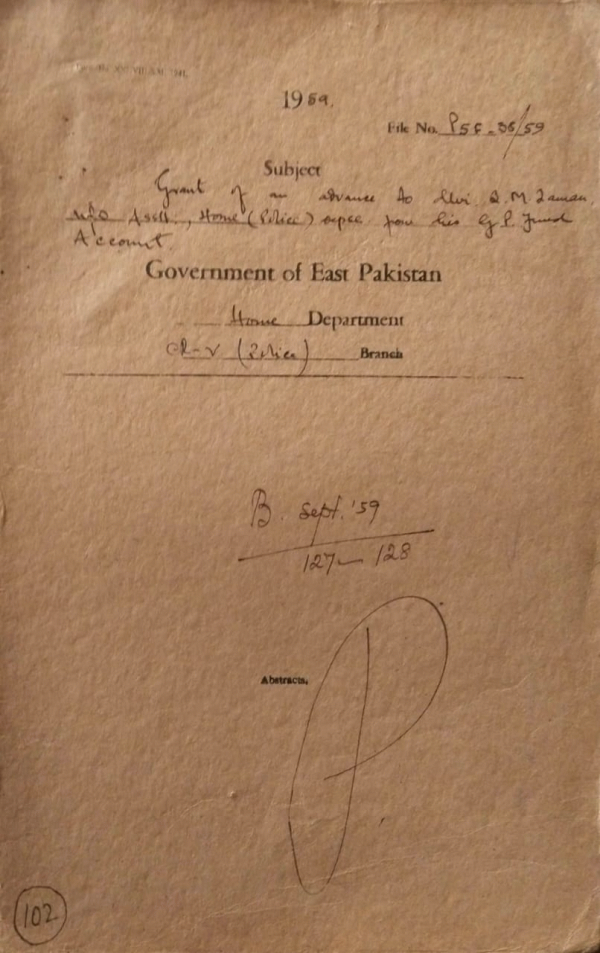 1959.
File No. P5F-35/59
Subject
Grant of an advance to Q. M. Zaman,
Asstt., Home (Police) from his G.P. Fund
Account.
Government of East Pakistan
Home Department
(Police) Branch
B. Sept. '59
127 — 128
Abstracts.
102